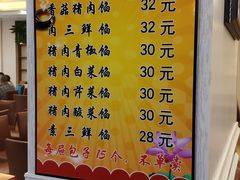 香菇猪肉馅 32元
肉三鲜馅 32元
猪肉青椒馅 30元
猪肉白菜馅 30元
猪肉芹菜馅 30元
猪肉酸菜馅 30元
素三鲜馅 28元
每屉包子15个，不单卖